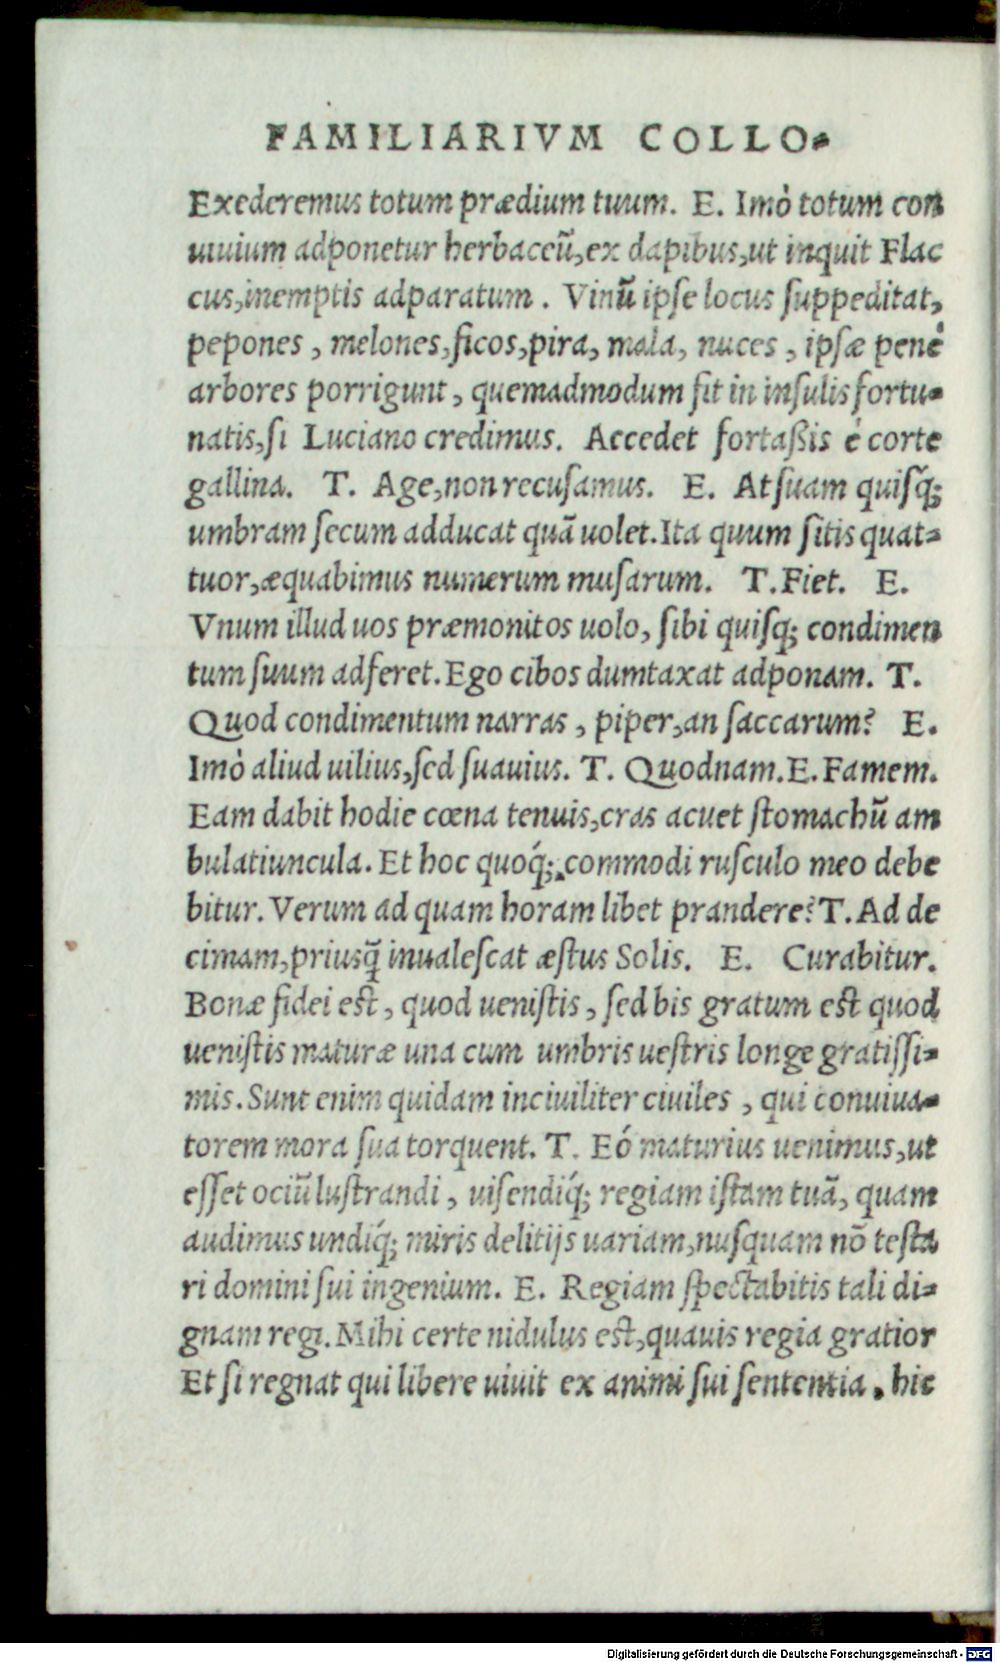 FAMILIARIVM COLLO-
Exederemus totum prædium tuum. E. Imò totum con
uiuium adponetur herbaceũ,ex dapibus,ut inquit Flac
cus,inemptis adparatum . Vinũ ipse locus suppeditat,
pepones , melones,ficos,pira, mala, nuces , ipsæ penè
arbores porrigunt , quemadmodum fit in insulis fortu-
natis,si Luciano credimus. Accedet fortaßis è corte
gallina. T. Age,non recusamus. E. At suam quisq̃;
umbram secum adducat quã uolet.Ita quum sitis quat-
tuor,æquabimus numerum musarum. T.Fiet. E.
Vnum illud uos præmonitos uolo, sibi quisq; condimen
tum suum adferet.Ego cibos dumtaxat adponam. T.
Quod condimentum narras , piper,an saccarum? E.
Imò aliud uilius,sed suauius. T. Quodnam.E.Famem.
Eam dabit hodie cœna tenuis,cras acuet stomachũ am
bulatiuncula. Et hoc quoq́; commodi rusculo meo debe
bitur. Verum ad quam horam libet prandere?T.Ad de
cimam,priusq̃ inualescat æstus Solis. E. Curabitur.
Bonæ fidei est , quod uenistis , sed bis gratum est quod
uenistis maturæ una cum umbris uestris longe gratissi-
mis. Sunt enim quidam inciuiliter ciuiles , qui conuiua-
torem mora sua torquent. T. Eó maturius uenimus,ut
esset ociũ lustrandi , uisendiq́; regiam istam tuã, quam
audimus undiq́; miris delitijs uariam,nusquam nõ testa
ri domini sui ingenium. E. Regiam spectabitis tali di-
gnam regi.Mihi certe nidulus est,quauis regia gratior
Et si regnat qui libere uiuit ex animi sui sententia , hic
Digitalisierung gefördert durch die Deutsche Forschungsgemeinschaft - DFG